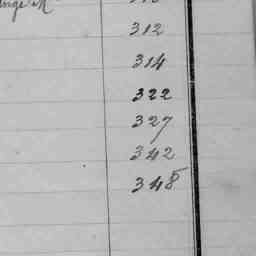 312
314
322
327
342
348